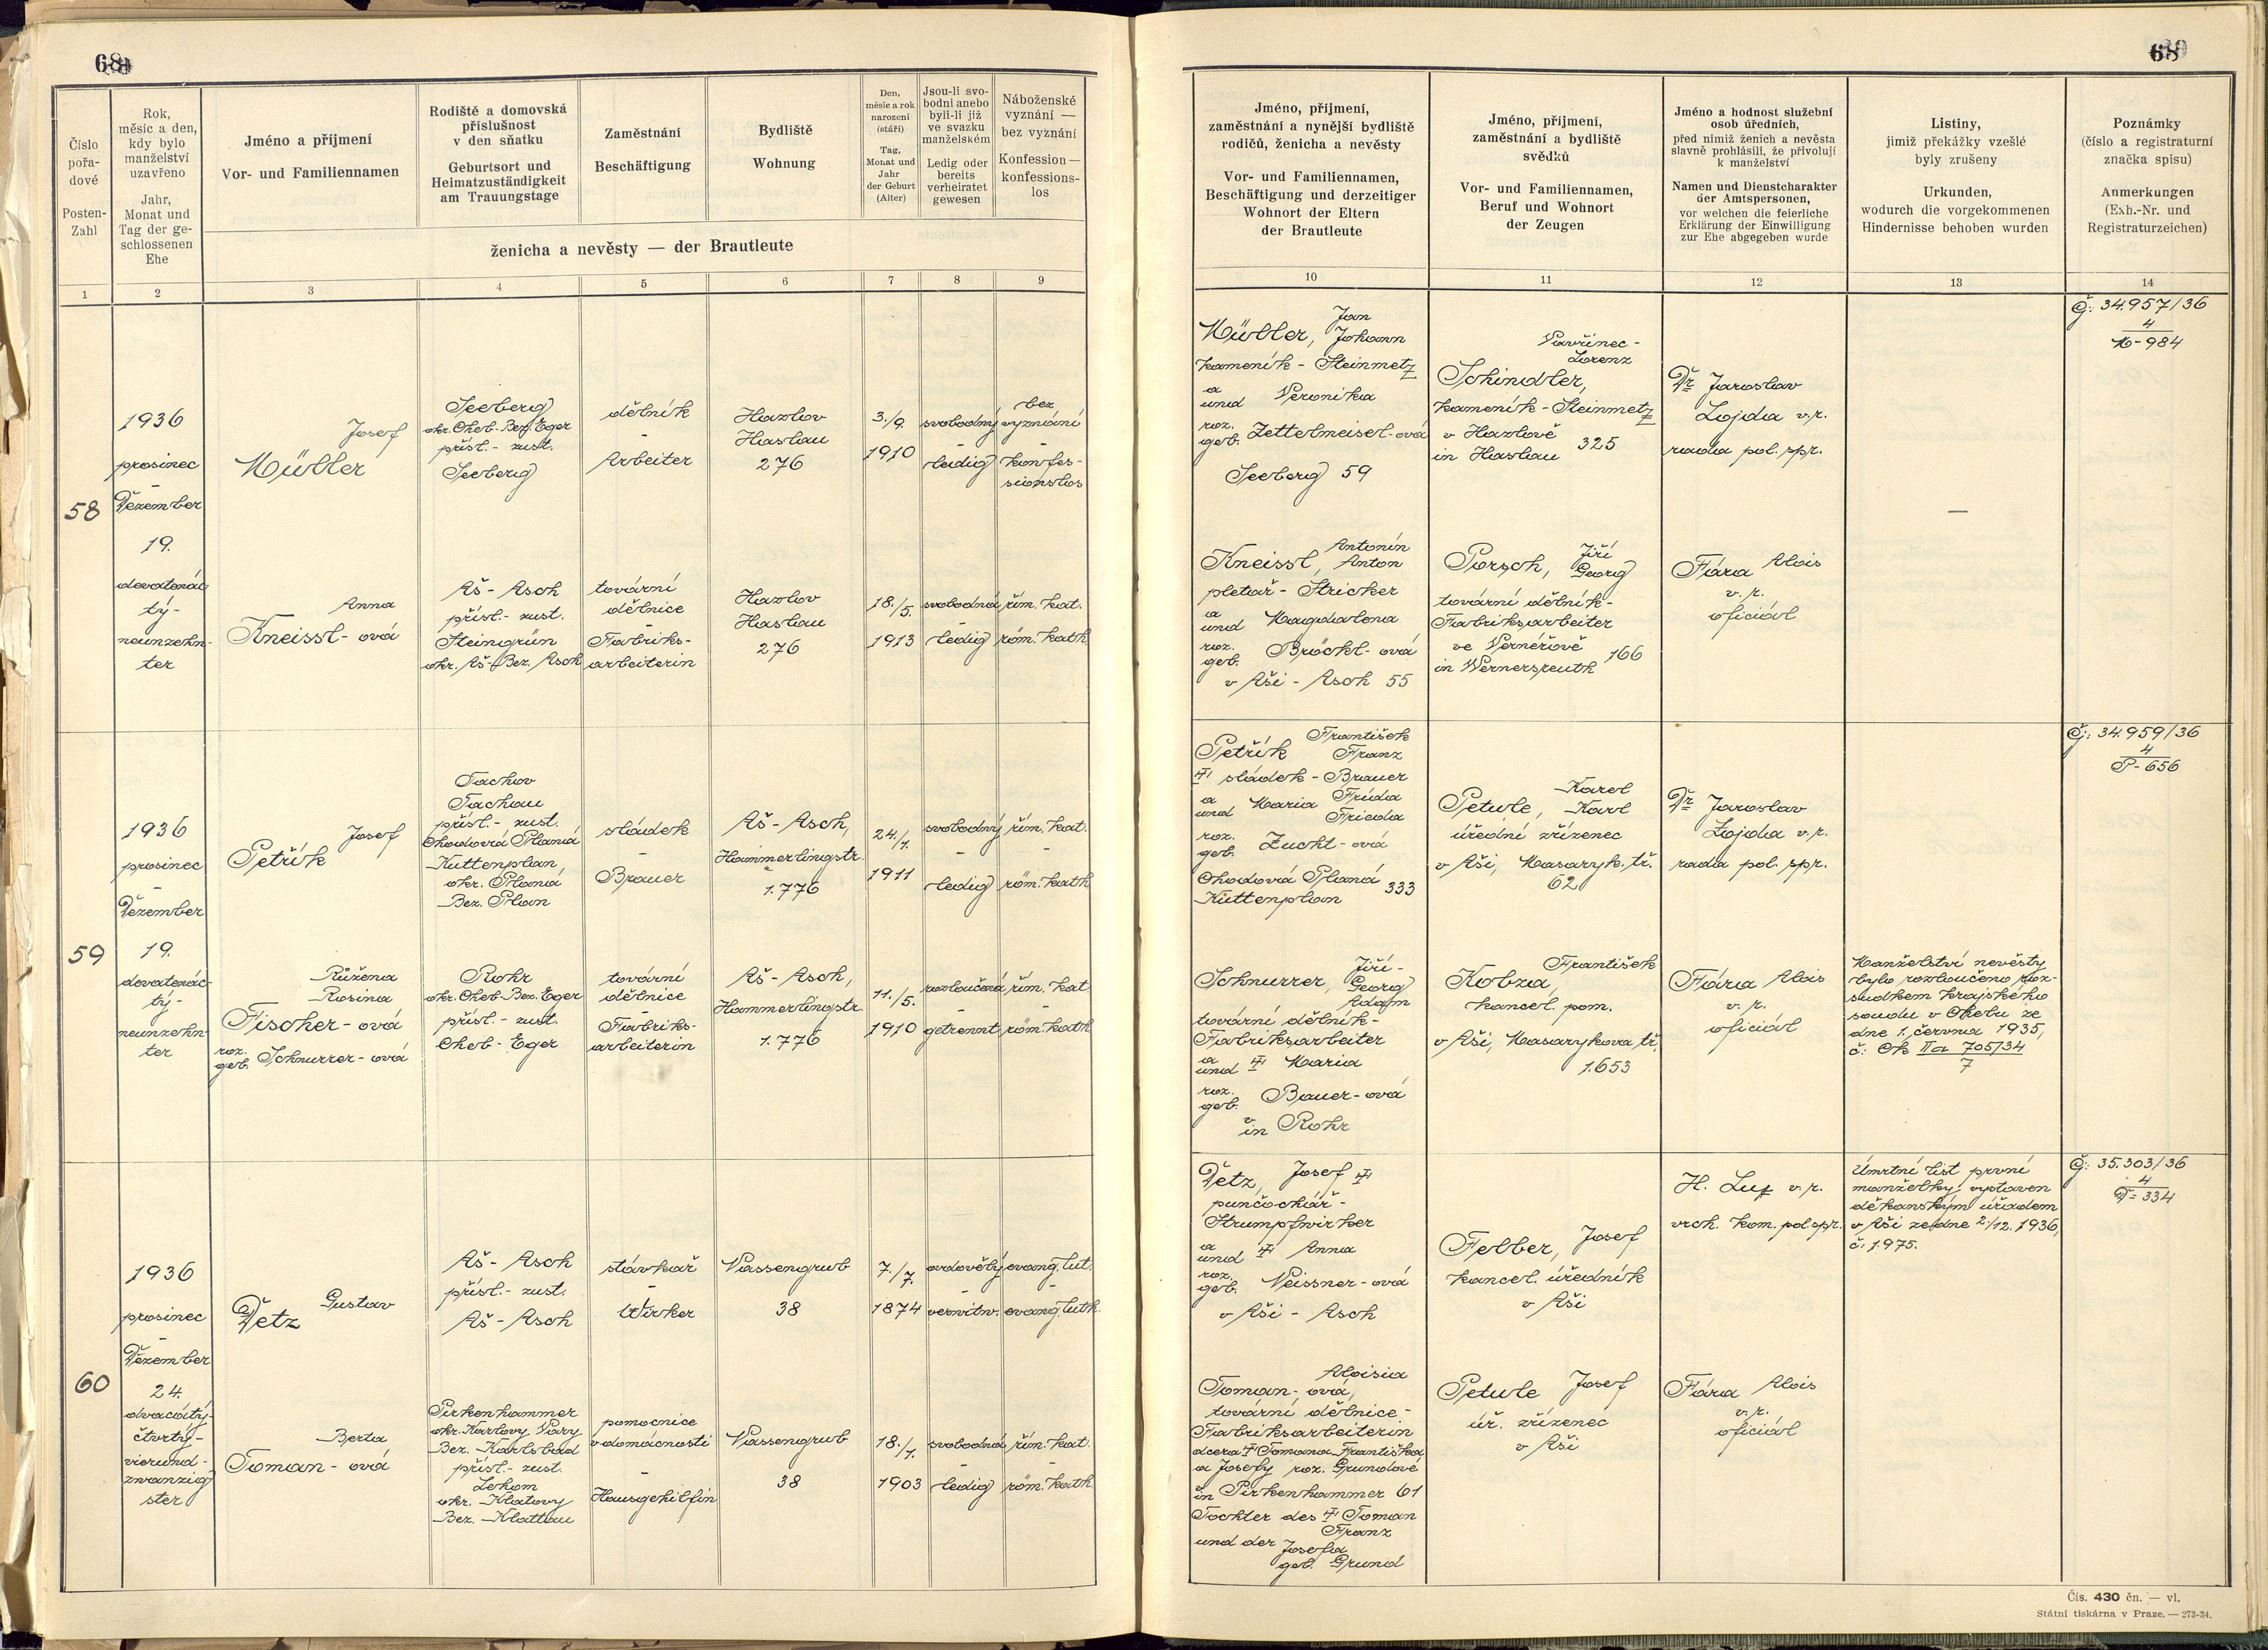 68
Číslo
pořa-
dové
Posten-
Zahl
Rok,
měsíc a den,
kdy bylo
manželství
uzavřeno
Jahr,
Monat und
Tag der ge-
schlossenen
Ehe
Jméno a příjmení
Vor- und Familiennamen
Rodiště a domovská
příslušnost
v den sňatku
Geburtsort und
Heimatzuständigkeit
am Trauungstage
Zaměstnání
Beschäftigung
Bydliště
Wohnung
Den,
měsíc a rok
narození
(stáří)
Tag,
Monat und
Jahr
der Geburt
(Alter)
Jsou-li svo-
bodni anebo
byli-li již
ve svazku
manželském
Ledig oder
bereits
verheiratet
gewesen
Náboženské
vyznání —
bez vyznání
Konfession —
konfessions-
los
ženicha a nevěsty — der Brautleute
1
2
3
4
5
6
7
8
9
58
1936
prosinec
-
Dezember
19.
devatenác-
tý-
neunzehn-
ter
Josef
Müller
Seeberg
okr. Cheb-Bez. Eger
přísl.- zust.
Seeberg
dělník
-
Arbeiter
Hazlov
Haslau
276
3./9.
1910
svobodný
-
ledig
bez
vyznání
-
konfes-
sionslos
Anna
Kneissl-ová
Aš - Asch
přísl.- zust.
Steingrün
okr. Aš-Bez. Asch
tovární
dělnice
-
Fabriks-
arbeiterin
Hazlov
Haslau
276
18./5.
1913
svobodná
-
ledig
řím. kat.
-
röm. kath.
59
1936
prosinec
-
Dezember
19.
devatenác-
tý-
neunzehn-
ter
Josef
Petřík
Tachov
Tachau
přísl.- zust.
Chodová Planá
Kuttenplan,
okr. Planá
Bez. Plan
sládek
-
Brauer
Aš - Asch,
Hammerlingstr.
1.776
24./1.
1911
svobodný
-
ledig
řím. kat.
-
röm. kath.
Růžena
Rosina
Fischer-ová
roz.
geb. Schnurrer-ová
Rohr
okr. Cheb-Bez. Eger
přísl.- zust.
Cheb - Eger
tovární
dělnice
-
Fabriks-
arbeiterin
Aš - Asch,
Hammerlingstr.
1.776
11./5.
1910
rozloučená
-
getrennt
řím. kat.
-
röm. kath.
60
1936
prosinec
-
Dezember
24.
dvacátý-
čtvrtý-
vierund-
zwanzig-
ster
Gustav
Detz
Aš - Asch
přísl.- zust.
Aš - Asch
stávkař
-
Wirker
Vassengrub
38
7./7.
1874
ovdovělý
-
verwitw.
evang. lut.
-
evang. luth.
Berta
Toman-ová
Pirkenhammer
okr. Karlovy Vary
Bez. Karlsbad
přísl.- zust.
okr. Klatovy
Bez. Klattau
pomocnice
v domácnosti
-
Hausgehilfin
Vassengrub
38
18./1.
1903
svobodná
-
ledig
řím. kat.
-
röm. kath.
68
Jméno, příjmení,
zaměstnání a nynější bydliště
rodičů, ženicha a nevěsty
Vor- und Familiennamen,
Beschäftigung und derzeitiger
Wohnort der Eltern
der Brautleute
Jméno, příjmení,
zaměstnání a bydliště
svědků
Vor- und Familiennamen,
Beruf und Wohnort
der Zeugen
Jméno a hodnost služební
osob úředních,
před nimiž ženich a nevěsta
slavně prohlásili, že přivolují
k manželství
Namen und Dienstcharakter
der Amtspersonen,
vor welchen die feierliche
Erklärung der Einwilligung
zur Ehe abgegeben wurde
Listiny,
jimiž překážky vzešlé
byly zrušeny
Urkunden,
wodurch die vorgekommenen
Hindernisse behoben wurden
Poznámky
(číslo a registraturní
značka spisu)
Anmerkungen
(Exh.-Nr. und
Registraturzeichen)
10
11
12
13
14
Jan
Müller, Johann
kameník - Steinmetz
a
und Veronika
roz.
geb. Zettelmeisel-ová
Seeberg 59
Vavřinec-
Lorenz
Schindler,
kameník - Steinmetz
v Hazlově
in Haslau 325
Dr Jaroslav
Lojda v.r.
rada pol. spr.
Č: 34.957/36
4
M-984
Antonín
Kneissl, Anton
pletař - Stricker
a
und Magdalena
roz.
geb. Bröckl-ová
v Aši - Asch 55
Jiří
Porsch, Georg
tovární dělník-
Fabriksarbeiter
ve Vernéřově
in Wernersreuth 166
Fára Alois
v.r.
oficiál
—
František
Petřík Franz
sládek - Brauer
a
und Maria Frída
Frieda
roz.
geb. Zuckt-ová
Chodová Planá
Kuttenplan 333
Karel
Petule, Karl
úřední zřízenec
v Aši, Masaryk. tř.
62
Dr Jaroslav
Lojda v.r.
rada pol. spr.
Č: 34.959/36
4
P-656
Jiří-
Schnurrer, Georg
Adam
tovární dělník-
Fabriksarbeiter
a
und Maria
roz.
geb. Bauer-ová
v
in Rohr
František
Kobza,
kancel. pom.
v Aši, Masarykova tř.
1.653
Fára Alois
v.r.
oficiál
Manželství nevěsty
bylo rozloučeno roz-
sudkem krajského
soudu v Chebu ze
dne 1. června 1935,
č: Ck IIa 705/34
7
Detz, Josef
punčochář-
Strumpfwirker
a
und Anna
roz.
geb. Veissner-ová
v Aši - Asch
Felber, Josef
kancel. úředník
v Aši
v.r.
vrch. kom. pol. spr.
Úmrtní list první
manželky, vystaven
děkanským úřadem
v Aši ze dne 2./12. 1936,
č: 1.975.
Č: 35.303/36
4
D-334
Aloisia
Toman-ová,
tovární dělnice-
Fabriksarbeiterin
dcera Tomana Františka
a Josefy roz. Grundové
v
in Pirkenhammer 61
Tochter des Toman
Franz
und der Josefa
geb. Grund
Petule Josef
úř. zřízenec
v Aši
Fára Alois
v.r.
oficiál
Čís. 430 čn. — vl.
Státní tiskárna v Praze. — 273-34.